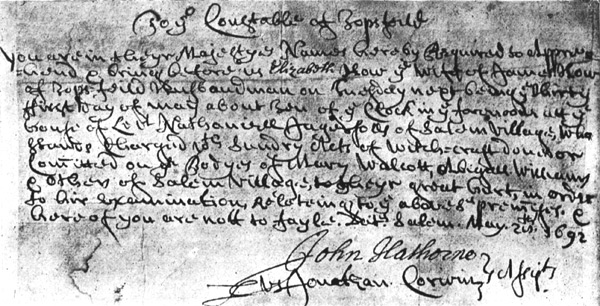 To ye Constable of Topsfeild
You are in theyr Majestyes Names hereby Required to Appre=
=hend & bring before us Elizabeth How ye wife of James How
of Topsfeild Husbandman on Tuesday next being ye thirty
first day of may about Ten of ye Clock in ye forenoon att ye
house of Levt Nathaniell Ingersolls of Salem Village, Who
stands Charged wth Sundry Acts of Witchcraft donne or
Comitted on ye Bodyes of Mary Walcott, Abigall Williams
& others of Salem Village, to theyr great hurt, in order
to hir examination, Relateing to ye abovesd premises, &
hereof you are nott to fayle. Datd Salem. May. 1692
John Hathorne
Jonathan. Corwin